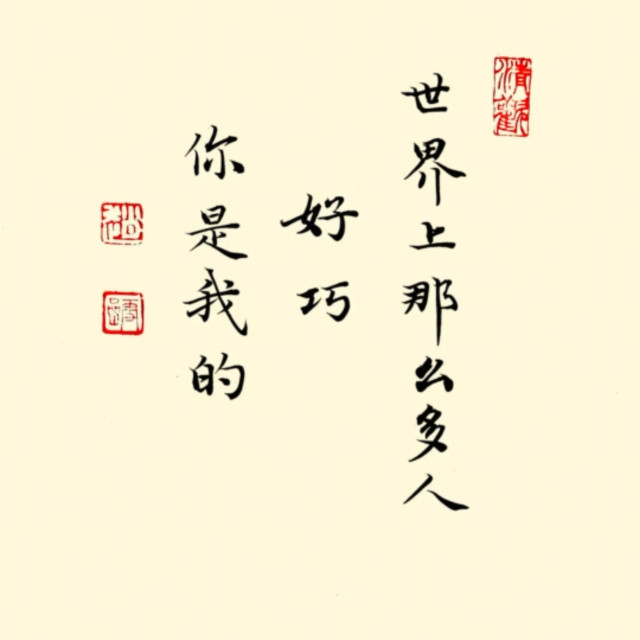 世界上那么多人
好巧
你是我的